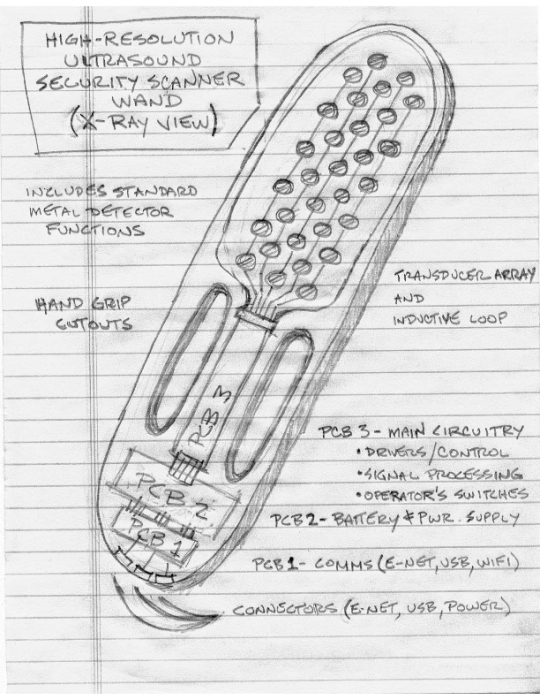 HIGH-RESOLUTION
ULTRASOUND
SECURITY SCANNER
WAND
(X-RAY VIEW)
INCLUDES STANDARD
METAL DETECTOR
FUNCTIONS
HAND GRIP
CUTOUTS
TRANSDUCER ARRAY
AND
INDUCTIVE LOOP
PCB 3
PCB 2
PCB 1
PCB 3 - MAIN CIRCUITRY
• DRIVERS/CONTROL
• SIGNAL PROCESSING
• OPERATOR'S SWITCHES
PCB 2 - BATTERY & PWR. SUPPLY
PCB 1 - COMMS (E-NET, USB, WIFI)
CONNECTORS (E-NET, USB, POWER)